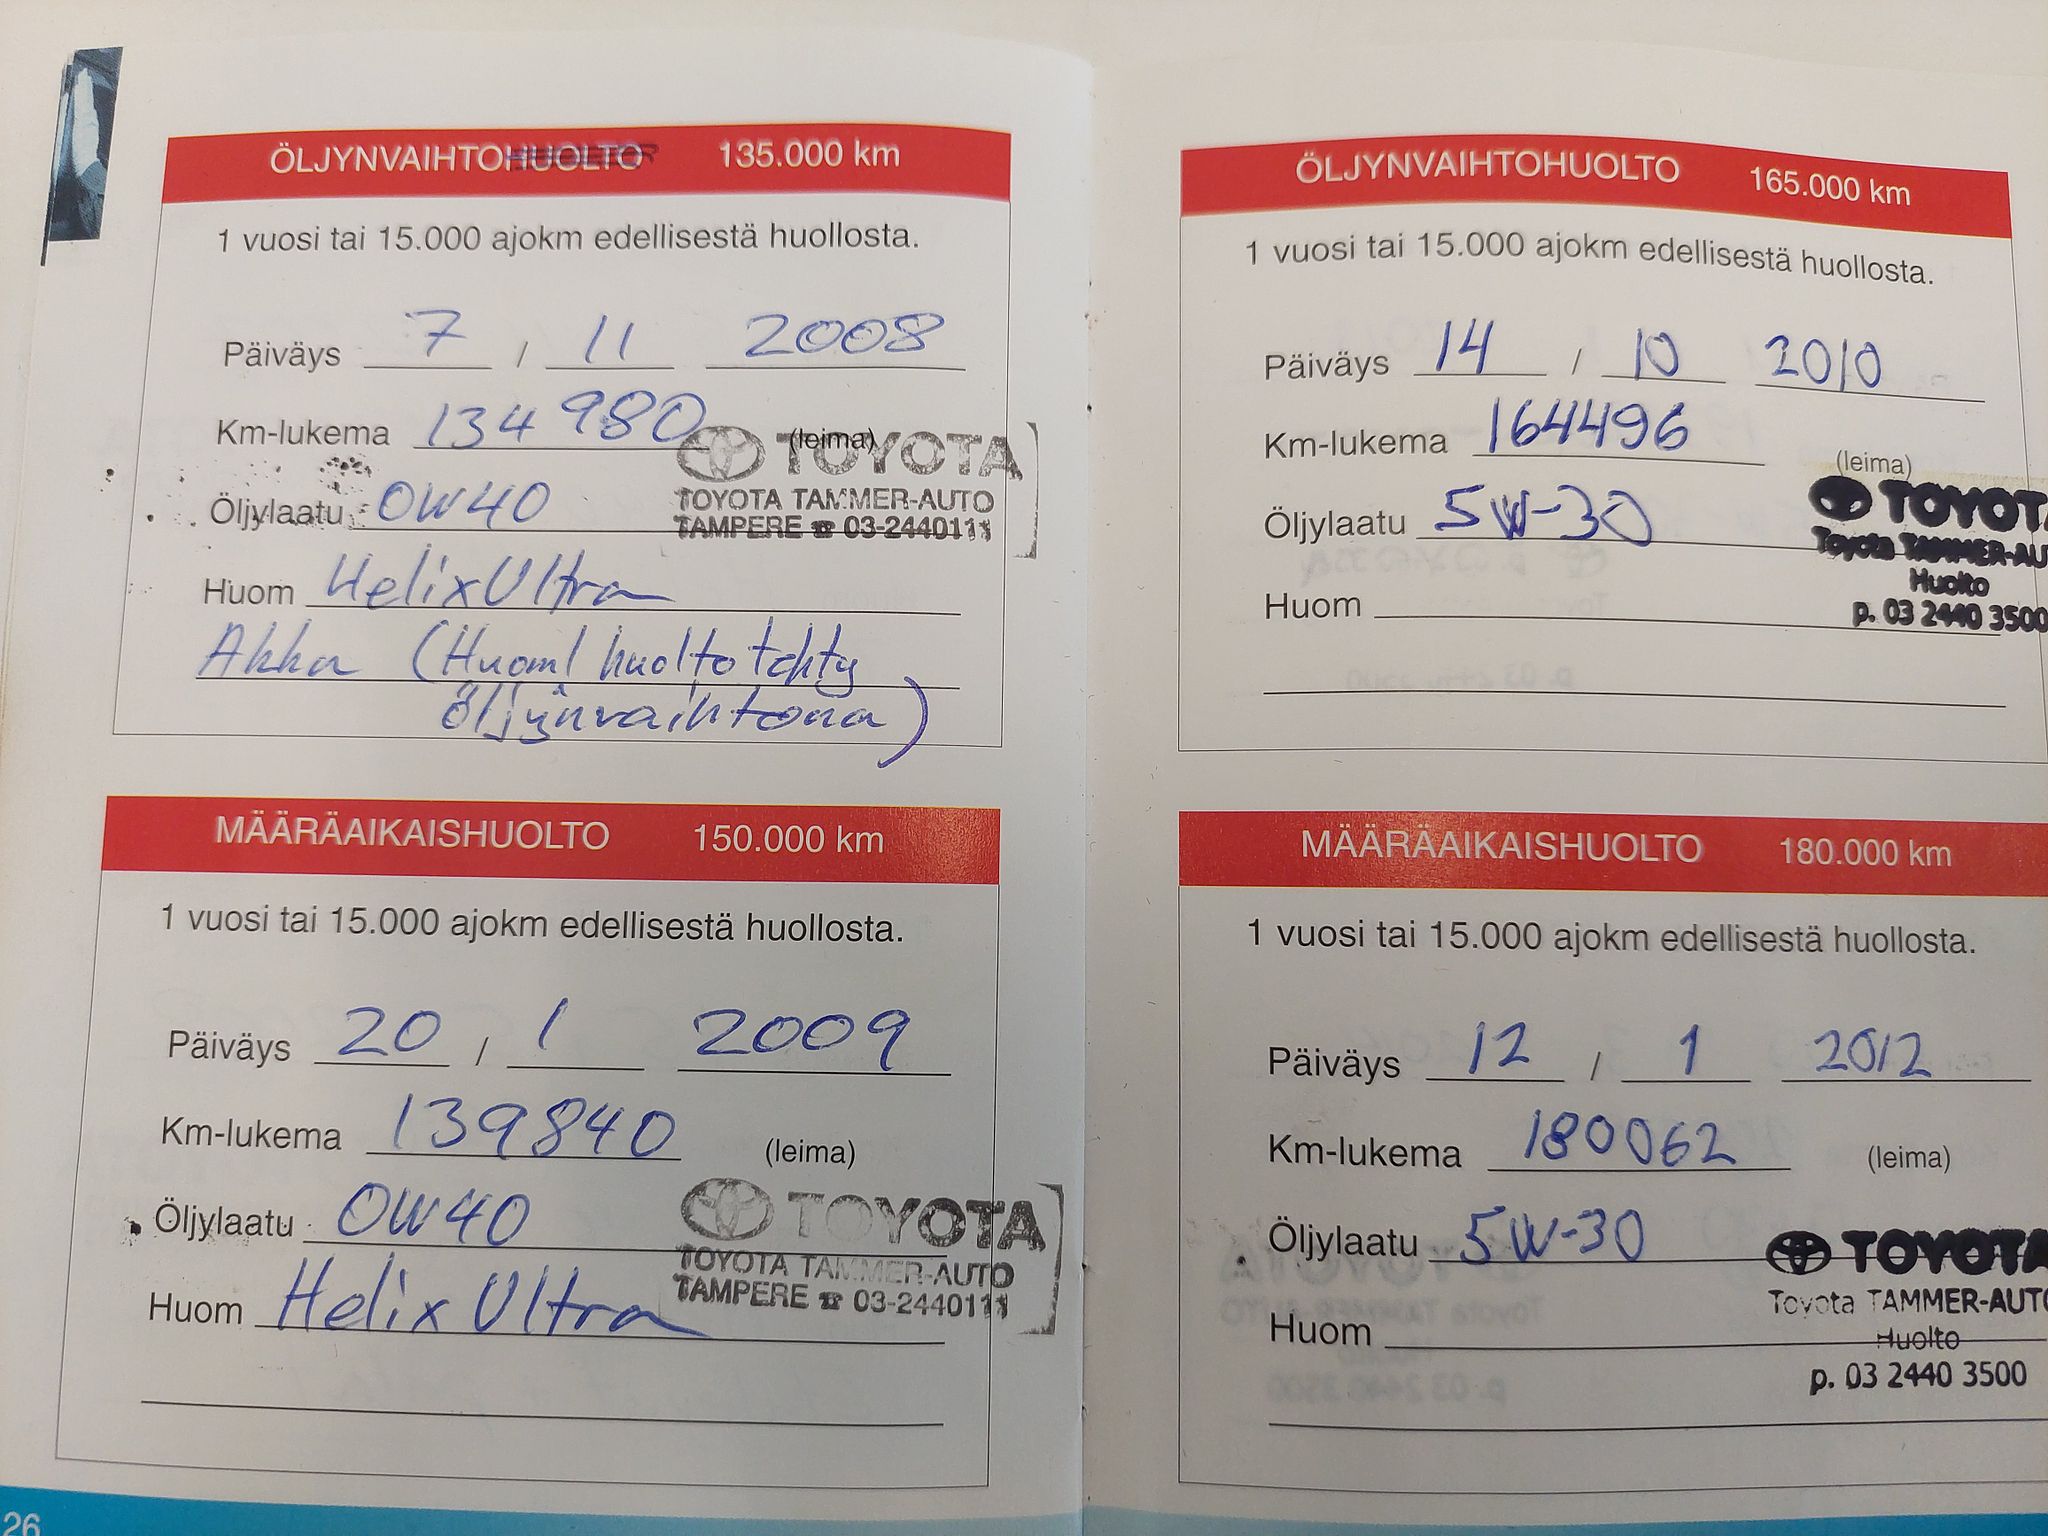 ÖLJYNVAIHTOHUOLTO 135.000 km
1 vuosi tai 15.000 ajokm edellisestä huollosta.
Päiväys 7 / 11 2008
Km-lukema 134 980 (leima)
TOYOTA
Öljylaatu 0W40
TOYOTA TAMMER-AUTO
TAMPERE ☎ 03-2440111
Huom Helix Ultra
Akku (Huom! huolto tehty
öljynvaihtona)
MÄÄRÄAIKAISHUOLTO 150.000 km
1 vuosi tai 15.000 ajokm edellisestä huollosta.
Päiväys 20 / 1 2009
Km-lukema 139840 (leima)
Öljylaatu 0W40
TOYOTA
TOYOTA TAMMER-AUTO
TAMPERE ☎ 03-2440111
Huom Helix Ultra
26
ÖLJYNVAIHTOHUOLTO 165.000 km
1 vuosi tai 15.000 ajokm edellisestä huollosta.
Päiväys 14 / 10 2010
Km-lukema 164496 (leima)
Öljylaatu 5W-30
TOYOTA
Toyota TAMMER-AU
Huolto
p. 03 2440 3500
Huom
MÄÄRÄAIKAISHUOLTO 180.000 km
1 vuosi tai 15.000 ajokm edellisestä huollosta.
Päiväys 12 / 1 2012
Km-lukema 180062 (leima)
Öljylaatu 5W-30
TOYOTA
Toyota TAMMER-AUTO
Huolto
p. 03 2440 3500
Huom